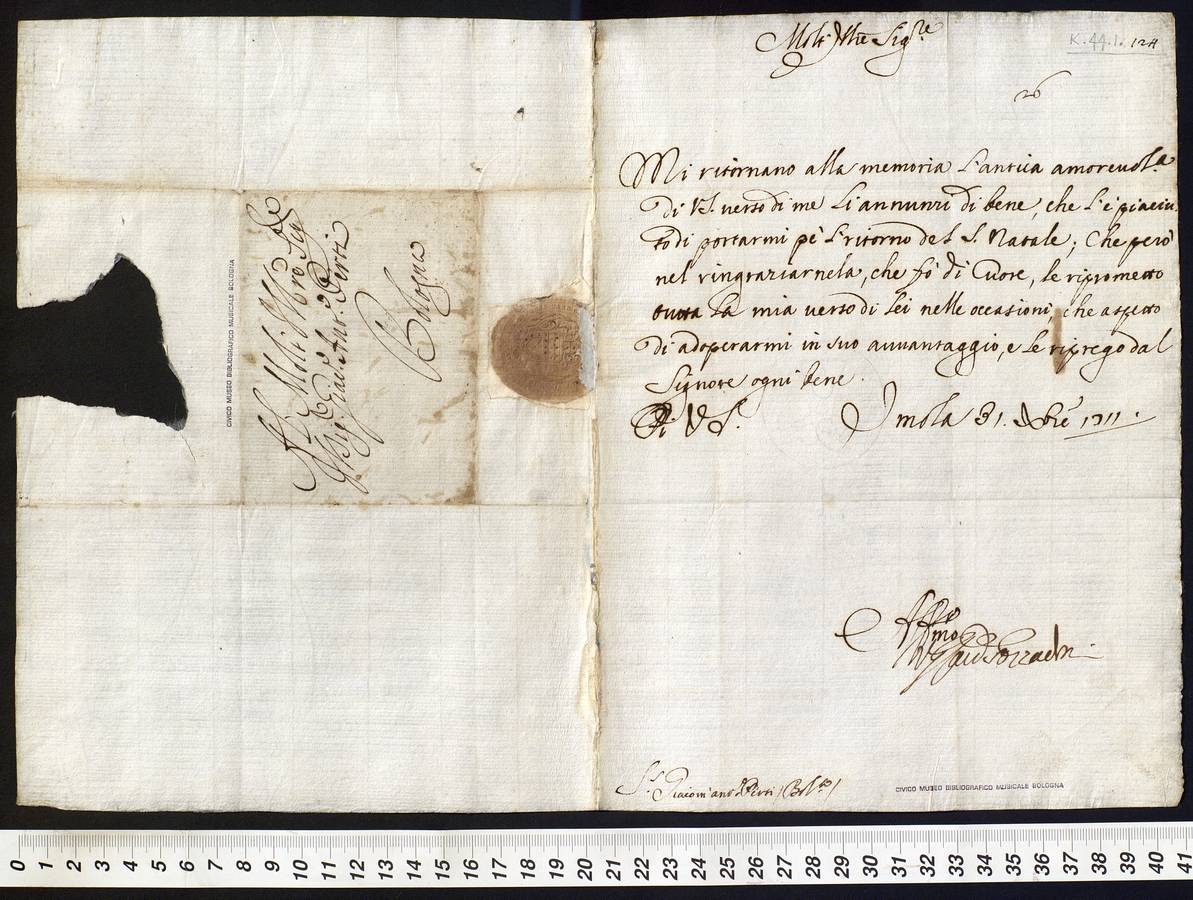 Al Molt. Illre Sigre
Sig. Giac. Ant.o Perti
Bologna
CIVICO MUSEO BIBLIOGRAFICO MUSICALE BOLOGNA
Molt. Illre Sigre
K.44.1. 124
26
Mi ritornano alla memoria l'antica amorevol.a
di V.S. verso di me li annunzi di bene, che l'è piaciu
to di portarmi pe'l ritorno del S. Natale; Che però
nel ringraziarnela, che fò di Cuore, le riprometto
tutta la mia verso di Lei nelle occasioni, che aspetto
di adoperarmi in suo avvantaggio, e le riprego dal
Signore ogni bene.
Di V.S. Imola 31. Xbre 1711.
Aff.mo
S.r Giacom'ant.o Perti (Bol.a)
CIVICO MUSEO BIBLIOGRAFICO MUSICALE BOLOGNA
0 1 2 3 4 5 6 7 8 9 10 11 12 13 14 15 16 17 18 19 20 21 22 23 24 25 26 27 28 29 30 31 32 33 34 35 36 37 38 39 40 41